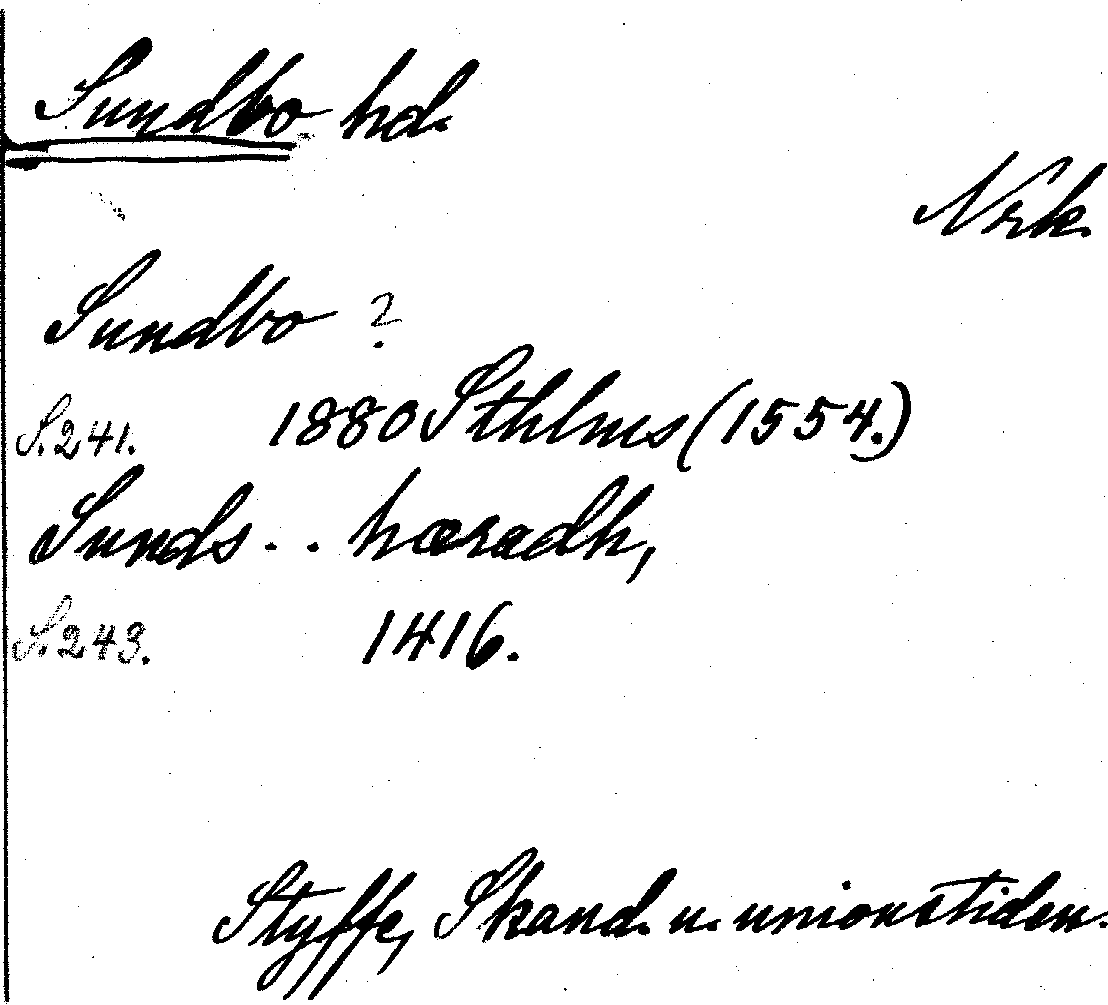 Sundbo hd.
Nrk.
Sundbo ?
S. 241. 1880 Sthlms (1554.)
Sunds . . hæradh,
S. 243. 1416.
Styffe, Skand. u. unionstiden.